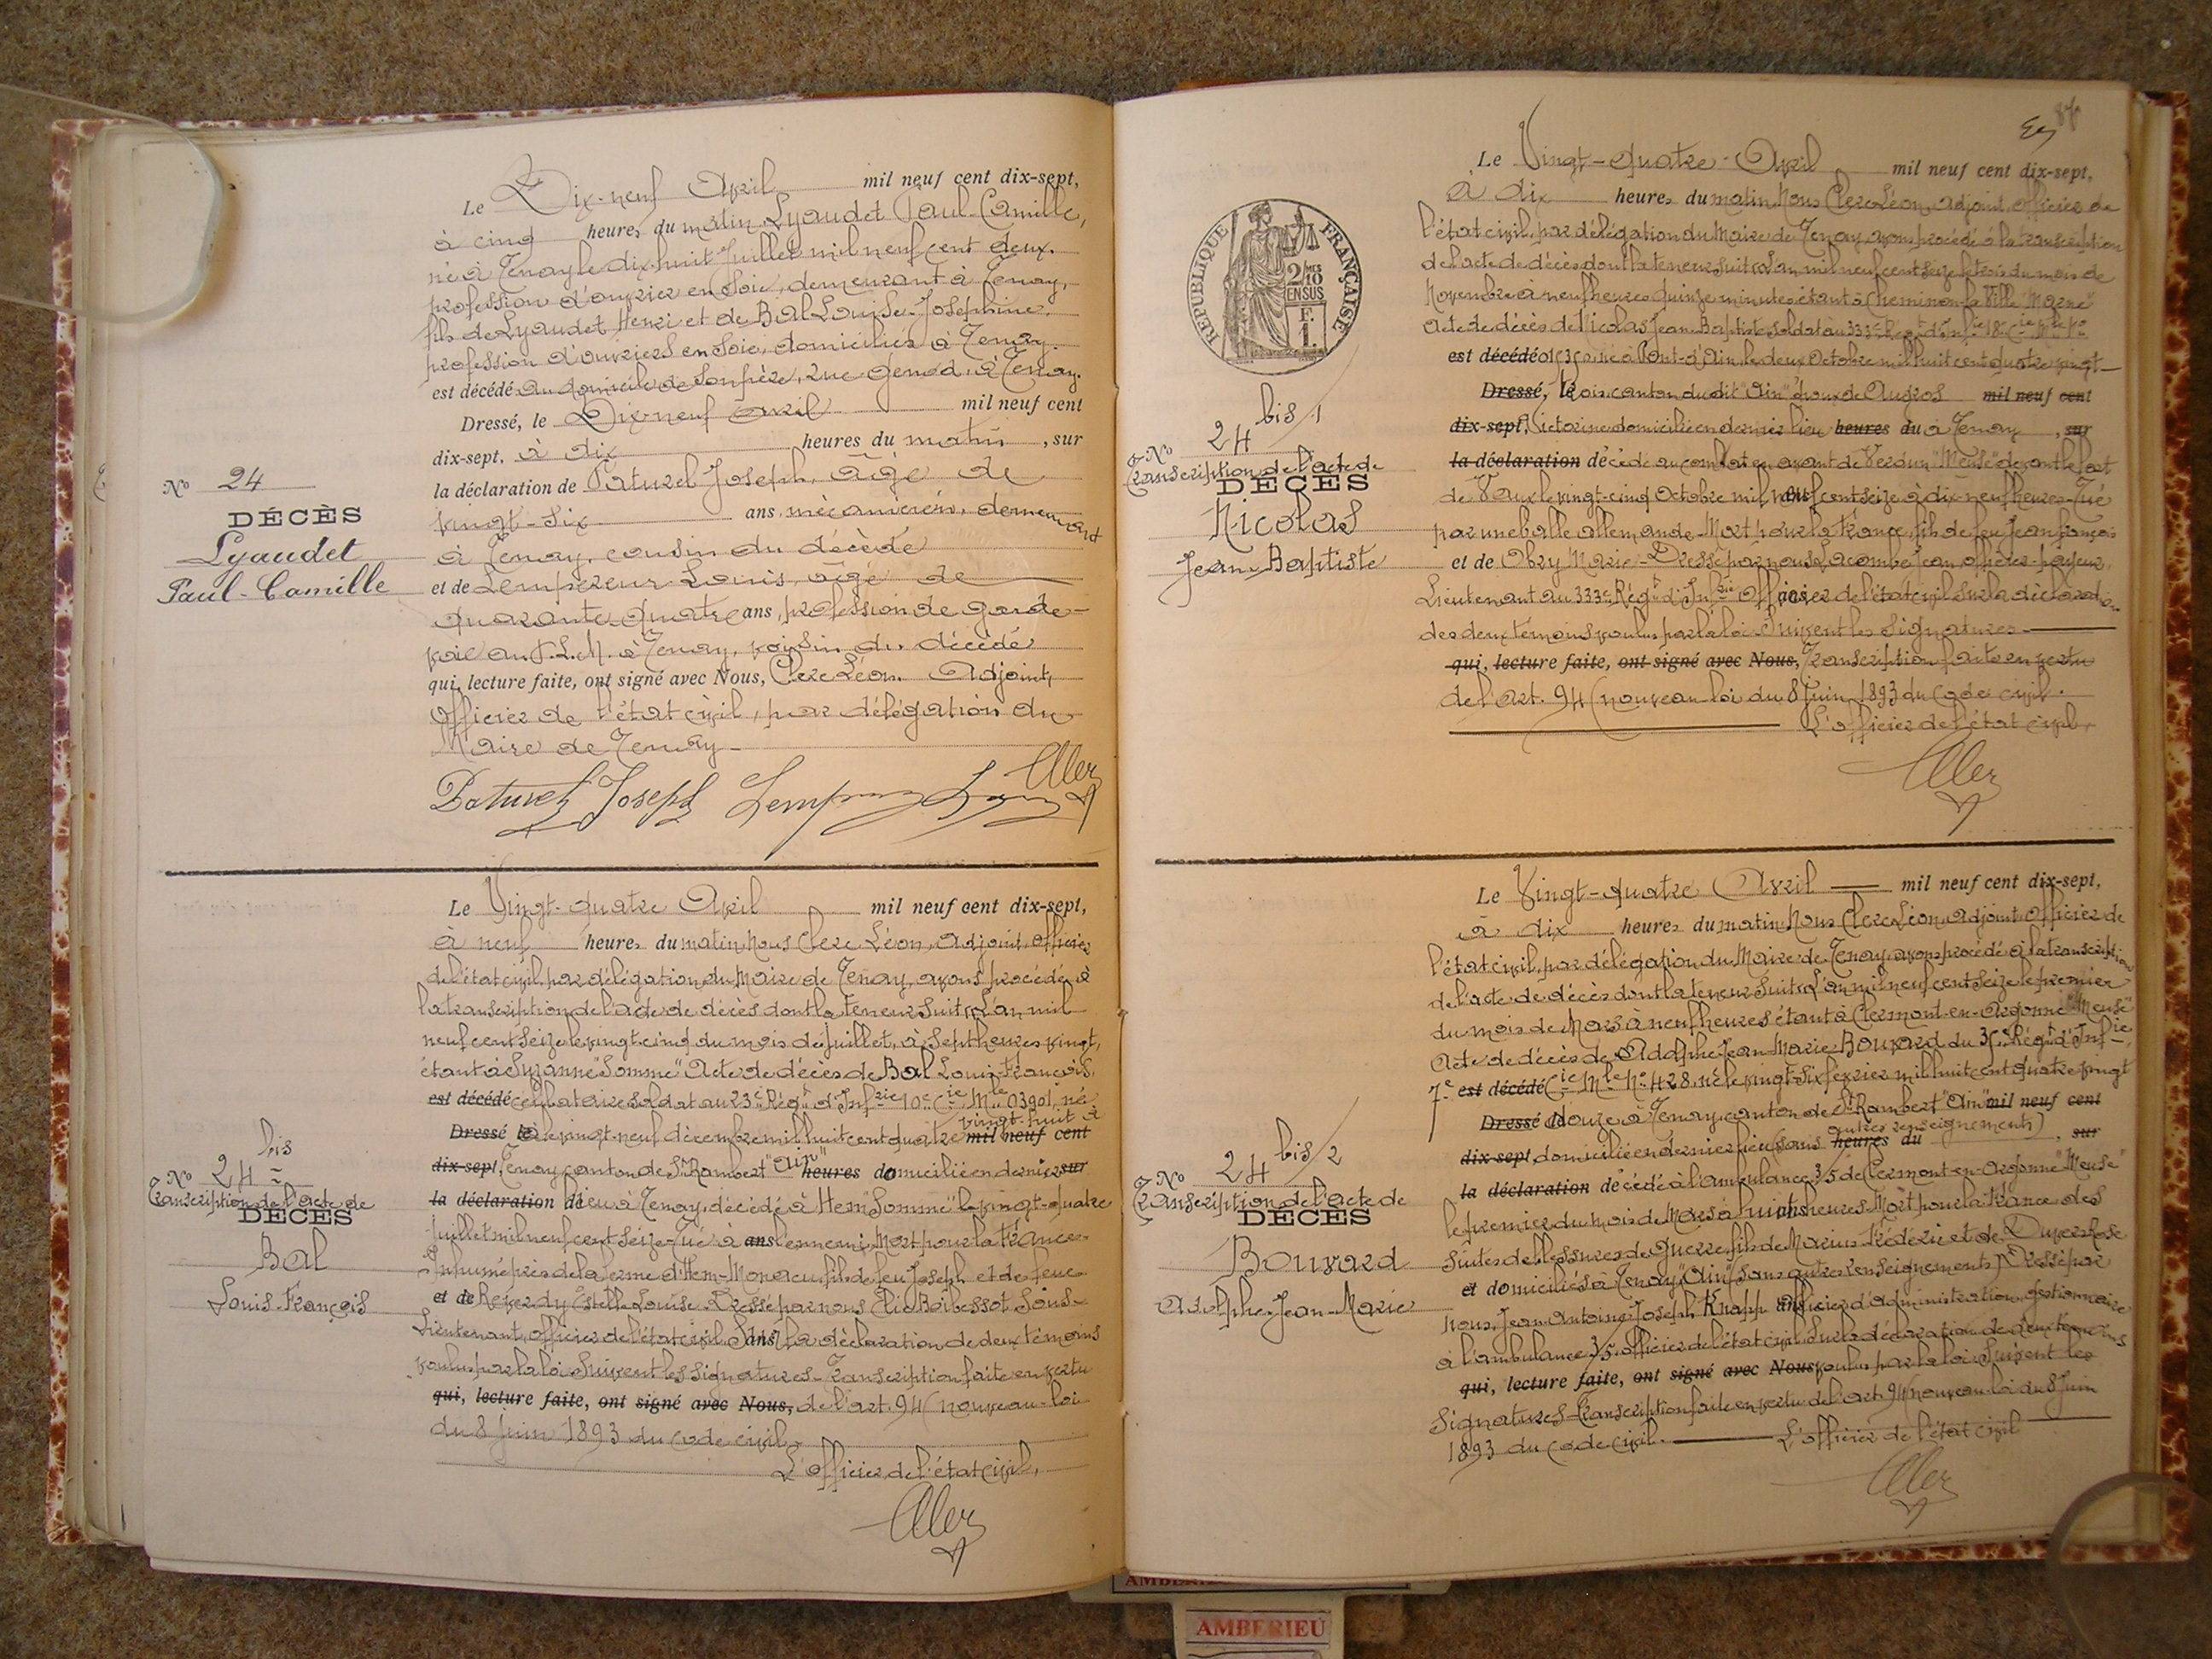 Le Dix-neuf Avril mil neuf cent dix-sept,
à cinq heures du matin Lyaudet Paul-Camille,
né à Tenay le dix-huit Juillet mil neuf cent deux,
profession d'ouvrier en soie, demeurant à Tenay,
fils de Lyaudet Henri et de Bal Louise-Josephine,
profession d'ouvriers en soie, domiciliés à Tenay.
est décédé au domicile de son père, rue Genod, à Tenay.
Dressé, le Dix-neuf avril mil neuf cent
dix-sept, à dix heures du matin, sur
la déclaration de Paturel Joseph, âgé de
vingt-six ans, mécanicien, demeurant
à Tenay, cousin du décédé
et de Lempereur Louis, âgé de
quarante-quatre ans, profession de garde-
voie au P.L.M. à Tenay, voisin du décédé
qui, lecture faite, ont signé avec Nous, Clerc Léon, Adjoint,
Officier de l'état civil, par délégation du
Maire de Tenay
Paturel Joseph
No 24
DÉCÈS
Lyaudet
Paul-Camille
Le Vingt-quatre Avril mil neuf cent dix-sept,
à neuf heures du matin Nous Clerc Léon, adjoint, officier
de l'état civil par délégation du Maire de Tenay, avons procédé à
la transcription de l'acte de décès dont la teneur suit: L'an mil
neuf cent seize le vingt-cinq du mois de juillet, à sept heures vingt,
étant à Suzanne "Somme" Acte de décès de Bal Louis-François,
est décédé célibataire soldat au 23e Régt d'Infrie 10e Cie Mle 03901, né
vingt-huit à
Dressé le le vingt-neuf décembre mil huit cent quatre mil neuf cent
dix-sept, Tenay canton de St Rambert "Ain" heures domicilié en dernier sur
la déclaration de lieu à Tenay, décédé à Hem "Somme" le vingt-quatre
Juillet mil neuf cent seize-Tué à ans l'ennemi, Mort pour la France
Inhumé près de la ferme d'Hem-Monacu, fils de feu Joseph et de feue
et de Reverdy Estelle Louise Dressé par nous Elie Boibessot Sous-
Lieutenant, officier de l'état civil Sur ans la déclaration de deux témoins
voulus par la loi Suivent les signatures-Transcription faite en vertu
qui, lecture faite, ont signé avec Nous, de l'art. 94 (nouveau-loi
du 8 Juin 1893 du code civil.
L'officier de l'état civil,
No 24 bis
Transcription de l'acte de
DÉCÈS
Bal
Louis-François
87
REPUBLIQUE FRANÇAISE
2/10 MES
EN SUS
F.
1.
Le Vingt-quatre-Avril mil neuf cent dix-sept,
à dix heures du matin Nous Clerc Léon, adjoint, officier de
l'état civil, par délégation du Maire de Tenay, avons procédé à la transcription
de l'acte de décès dont la teneur suit: L'an mil neuf cent seize le trois du mois de
Novembre à neuf heures quinze minutes étant à Cheminon-la-Ville "Marne"
Acte de décès de Nicolas Jean Baptiste soldat au 333e Régt d'Infie 18e Cie Mle No
est décédé né à Pont-d'Ain, le deux Octobre mil huit cent quatre vingt-
Dressé, le canton du dit "Ain" époux de Augros mil neuf cent
dix-sept, Victorine domicilié en dernier lieu heures du à Tenay, sur
la déclaration de décédé au combat en avant de Verdun "Meuse" devant le fort
de Vaux le vingt-cinq Octobre mil neuf cent seize à dix-neuf heures-Tué
par une balle allemande-Mort pour la France, fils de feu Jean François
et de Obry Marie-Dressé par nous Lacombe Jean, officier-payeur,
Lieutenant au 333e Régt d'Infrie officier de l'état civil sur la déclaration
des deux témoins voulus par la loi Suivent les signatures
qui, lecture faite, ont signé avec Nous, Transcription faite en vertu
de l'art. 94 (nouveau-loi du 8 Juin 1893 du Code civil.
L'officier de l'état civil,
No 24 bis/1
Transcription de l'acte de
DÉCÈS
Nicolas
Jean-Baptiste
Le Vingt-quatre Avril mil neuf cent dix-sept,
à dix heures du matin Nous Clerc Léon, adjoint, Officier de
l'état civil, par délégation du Maire de Tenay, avons procédé à la transcription
de l'acte de décès dont la teneur suit: L'an mil neuf cent seize le premier
du mois de Mars à neuf heures étant à Clermont-en-Argonne "Meuse"
Acte de décès de Adolphe Jean-Marie Bouvard du Régt d'Infie,
7e est décédé Cie Mle No 428, né le vingt-six février mil huit cent quatre vingt
Dressé douze à Tenay canton de St Rambert "Ain" mil neuf cent
autres renseignements)
dix-sept, domicilié en dernier lieu (sans heures du , sur
la déclaration de décédé à l'ambulance 3/5 de Clermont-en-Argonne "Meuse"
le premier du mois de Mars à huit ans heures-Mort pour la France des
suites de blessures de guerre, fils de Marius Frédéric et de Rose
et domiciliés à Tenay "Ain" (sans autres renseignements) Dressé par
nous, Jean Antoine Joseph Knapp ans officier d'administration gestionnaire
à l'ambulance 3/5, officier de l'état civil, Sur la déclaration de deux témoins
qui, lecture faite, ont signé avec Nous voulus par la loi Suivent les
signatures-Transcription faite en vertu de l'art. 94 (nouveau-loi du 8 Juin
1893 du code civil. L'officier de l'état civil
No 24 bis/2
Transcription de l'acte de
DÉCÈS
Bouvard
Adolphe-Jean-Marie
AMBERIEU